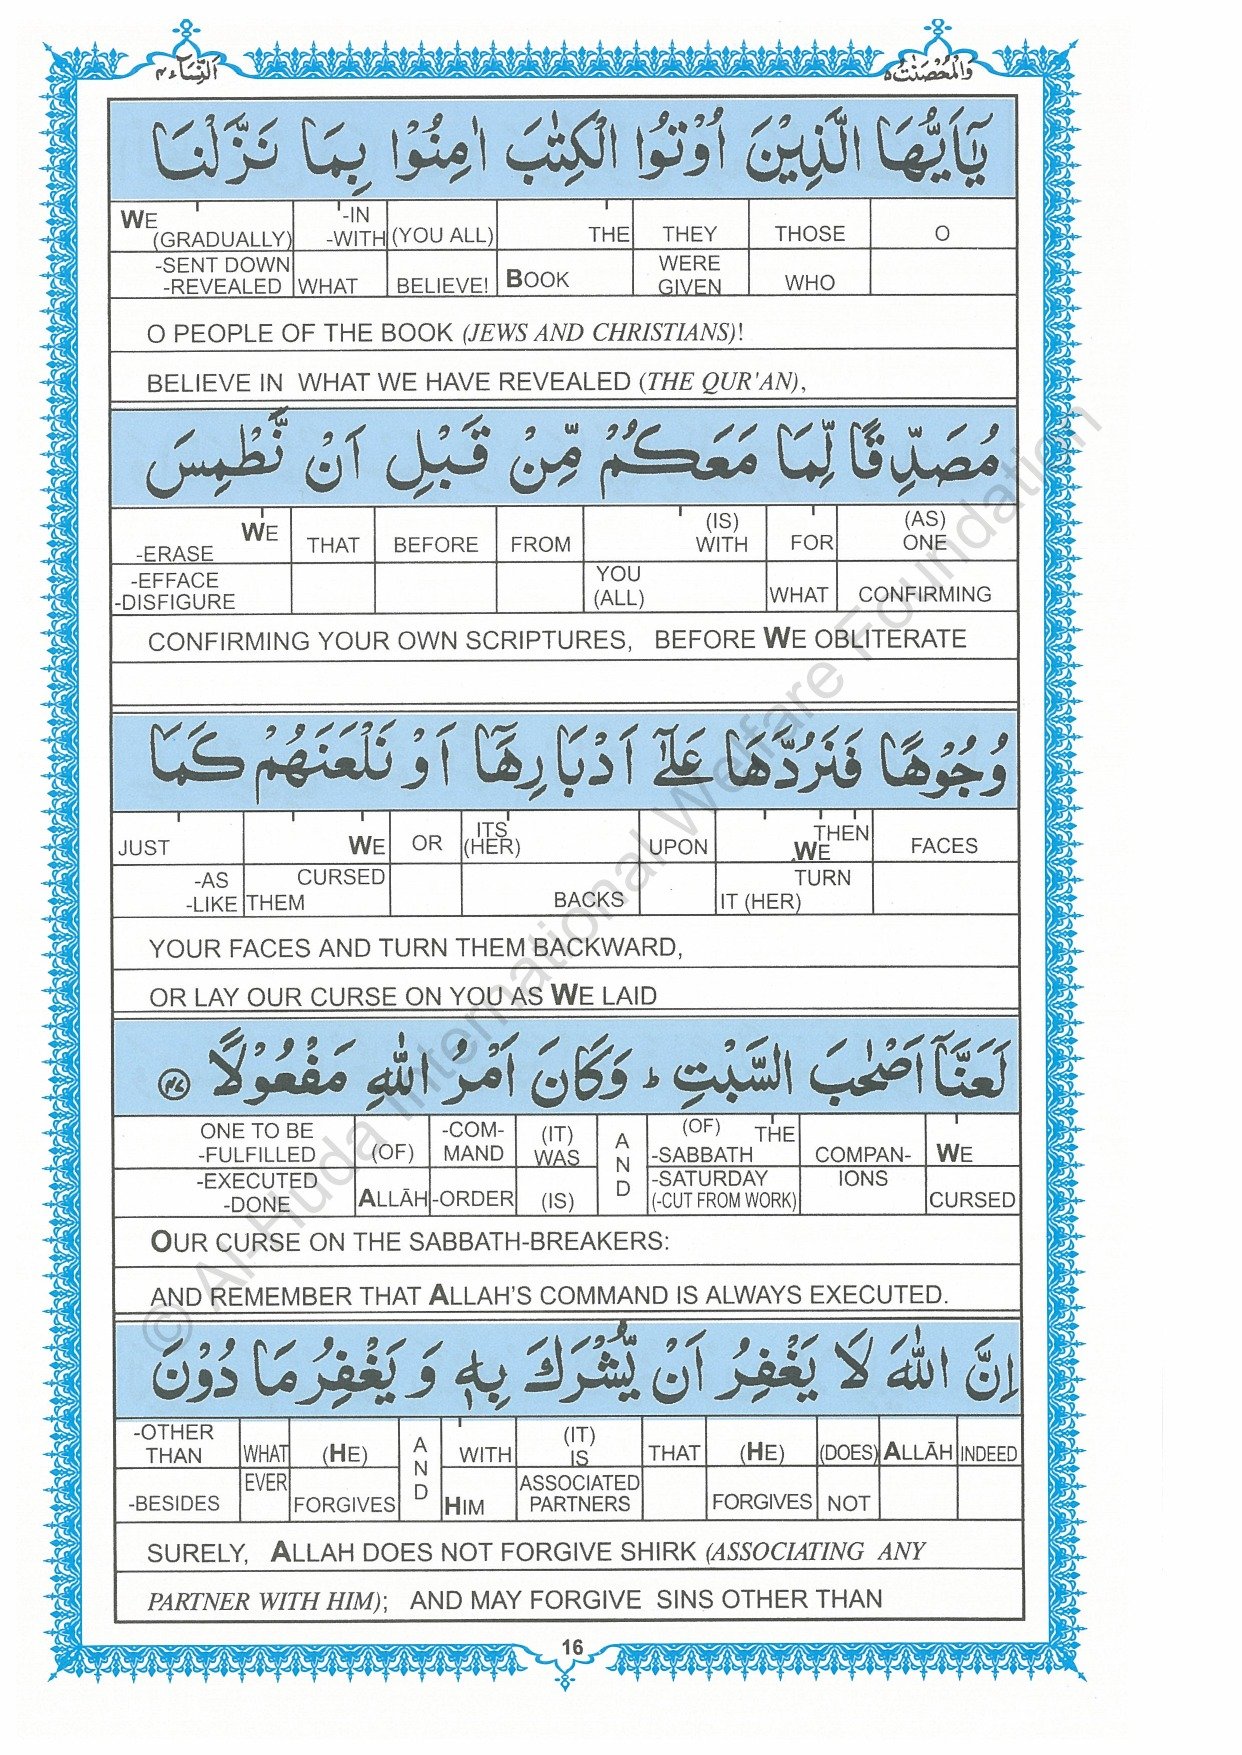 وَالْمُحْصَنٰتُ ٥ اَلنِّسَآء ٤
يٰٓاَيُّهَا الَّذِيْنَ اُوْتُوا الْكِتٰبَ اٰمِنُوْا بِمَا نَزَّلْنَا
WE (GRADUALLY) -IN -WITH (YOU ALL) THE THEY THOSE O
-SENT DOWN -REVEALED WHAT BELIEVE! BOOK WERE GIVEN WHO
O PEOPLE OF THE BOOK (JEWS AND CHRISTIANS)!
BELIEVE IN WHAT WE HAVE REVEALED (THE QUR'AN),
مُصَدِّقًا لِّمَا مَعَكُمْ مِّنْ قَبْلِ اَنْ نَّطْمِسَ
WE -ERASE THAT BEFORE FROM (IS) WITH FOR (AS) ONE
-EFFACE -DISFIGURE YOU (ALL) WHAT CONFIRMING
CONFIRMING YOUR OWN SCRIPTURES, BEFORE WE OBLITERATE
وُجُوْهًا فَنَرُدَّهَا عَلٰٓى اَدْبَارِهَآ اَوْ نَلْعَنَهُمْ كَمَا
JUST WE OR ITS (HER) UPON THEN WE FACES
-AS -LIKE CURSED THEM BACKS TURN IT (HER)
YOUR FACES AND TURN THEM BACKWARD,
OR LAY OUR CURSE ON YOU AS WE LAID
لَعَنَّآ اَصْحٰبَ السَّبْتِ ؕ وَكَانَ اَمْرُ اللّٰهِ مَفْعُوْلًا ٤٧
ONE TO BE -FULFILLED (OF) -COM-MAND (IT) WAS AND (OF) THE -SABBATH COMPAN- WE
-EXECUTED -DONE ALLĀH -ORDER (IS) -SATURDAY (-CUT FROM WORK) IONS CURSED
OUR CURSE ON THE SABBATH-BREAKERS:
AND REMEMBER THAT ALLAH'S COMMAND IS ALWAYS EXECUTED.
اِنَّ اللّٰهَ لَا يَغْفِرُ اَنْ يُّشْرَكَ بِهٖ وَيَغْفِرُ مَا دُوْنَ
-OTHER THAN WHAT (HE) AND WITH (IT) IS THAT (HE) (DOES) ALLĀH INDEED
-BESIDES EVER FORGIVES HIM ASSOCIATED PARTNERS FORGIVES NOT
SURELY, ALLAH DOES NOT FORGIVE SHIRK (ASSOCIATING ANY
PARTNER WITH HIM); AND MAY FORGIVE SINS OTHER THAN
16
© Al-Huda International Welfare Foundation